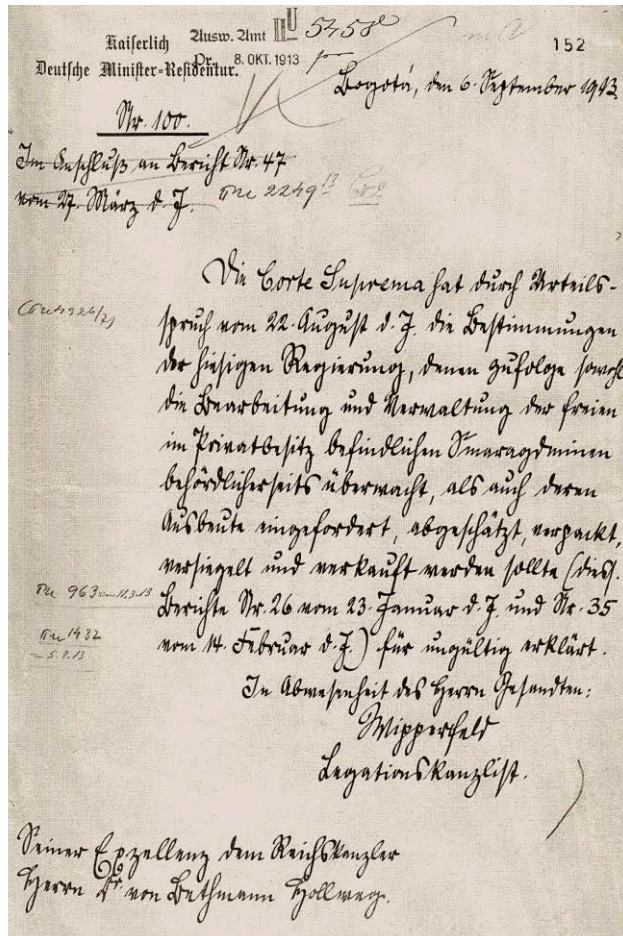 Kaiserlich
Deutsche Minister-Residentur.
Ausw. Amt II U 5458
Pr. 8. OKT. 1913
152
Bogotá, den 6. September 1913.
Nr. 100.
Im Anschluß an Bericht Nr. 47
vom 27. März d. J.
IIu 2249 13
Die Corte Suprema hat durch Urteils-
spruch vom 22. August d. J. die Bestimmungen
der hiesigen Regierung, denen zufolge sowohl
die Bearbeitung und Verwaltung der freien
im Privatbesitz befindlichen Smaragdminen
behördlicherseits überwacht, als auch deren
Ausbeute eingefordert, abgeschätzt, verpackt,
versiegelt und verkauft werden sollte (diess.
Berichte Nr. 26 vom 23. Januar d. J. und Nr. 35
vom 14. Februar d. J.) für ungültig erklärt.
IIu 963
IIu 1432
In Abwesenheit des Herrn Gesandten:
Wipperfeld
Legationskanzlist.
Seiner Exzellenz dem Reichskanzler
Herrn Dr. von Bethmann Hollweg.